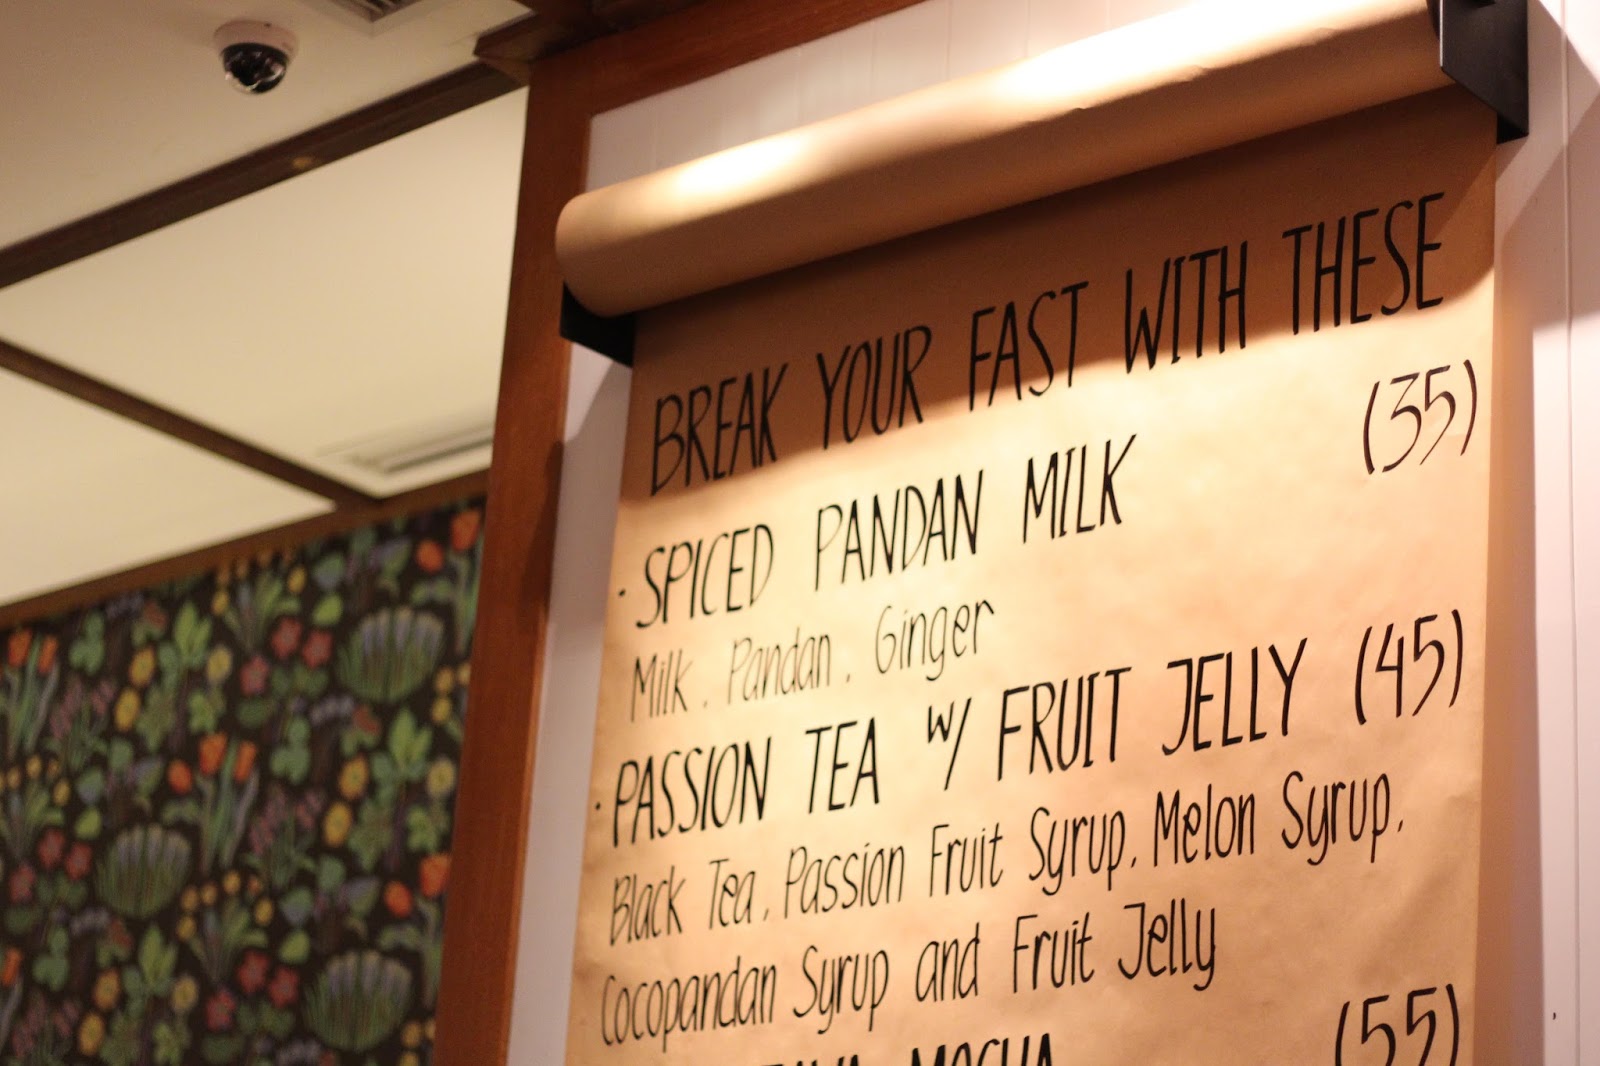 BREAK YOUR FAST WITH THESE
· SPICED PANDAN MILK (35)
Milk, Pandan, Ginger
· PASSION TEA w/ FRUIT JELLY (45)
Black Tea, Passion Fruit Syrup, Melon Syrup,
Cocopandan Syrup and Fruit Jelly
MOCHA (55)